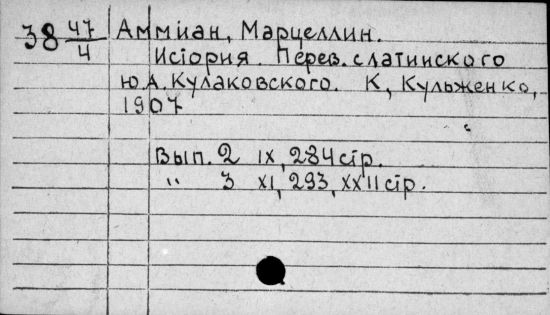 38 47/4 Аммиан, Марцеллин.
История. Перев. с латинского
Ю.А. Кулаковского. К, Кульженко,
1907
Вып. 2 IX, 284 стр.
" 3 XI, 293, XXII стр.